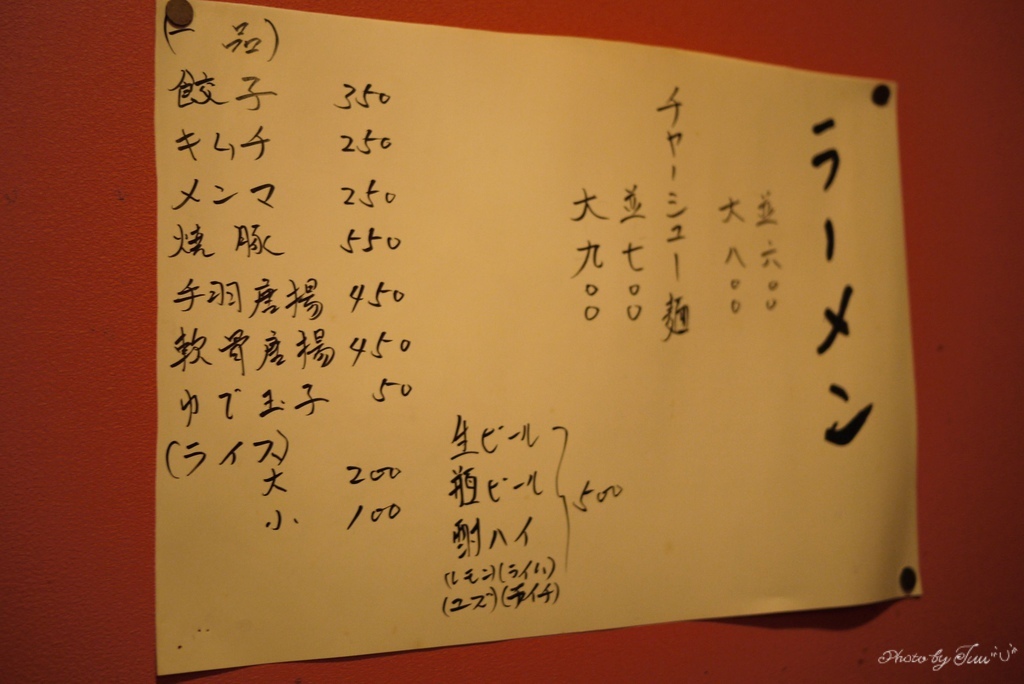 ラーメン
並六〇〇
大八〇〇
チャーシュー麺
並七〇〇
大九〇〇
(一品)
餃子 350
キムチ 250
メンマ 250
焼豚 550
手羽唐揚 450
軟骨唐揚 450
ゆで玉子 50
(ライス)
大 200
小 100
生ビール
瓶ビール
酎ハイ
500
(レモン)(ライム)
(ユズ)(ライチ)
Photo by Tuu